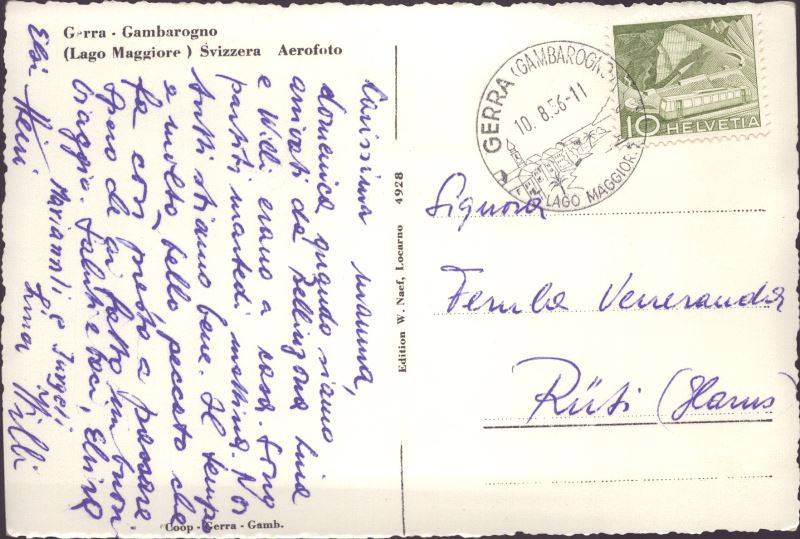 Gerra - Gambarogno
(Lago Maggiore ) Svizzera Aerofoto
Carissima mamma,
domenica quando siamo
arrivati da Bellinzona Lina
e Willi erano a casa. Sono
partiti martedì mattina. Noi
tutti stiamo bene. Il tempo
è molto bello peccato che
fa con presto a passare
Spero da fatto un buon
viaggio. Saluti e baci, Elvira
Marianli e Jürgeli
Lina Willi
Elsi Heiri
Coop - Gerra - Gamb.
Edition W. Naef, Locarno 4928
GERRA (GAMBAROGNO)
10. 8. 56-11
LAGO MAGGIORE
10 HELVETIA
Signora
Veneranda
Rüti (Glarus)